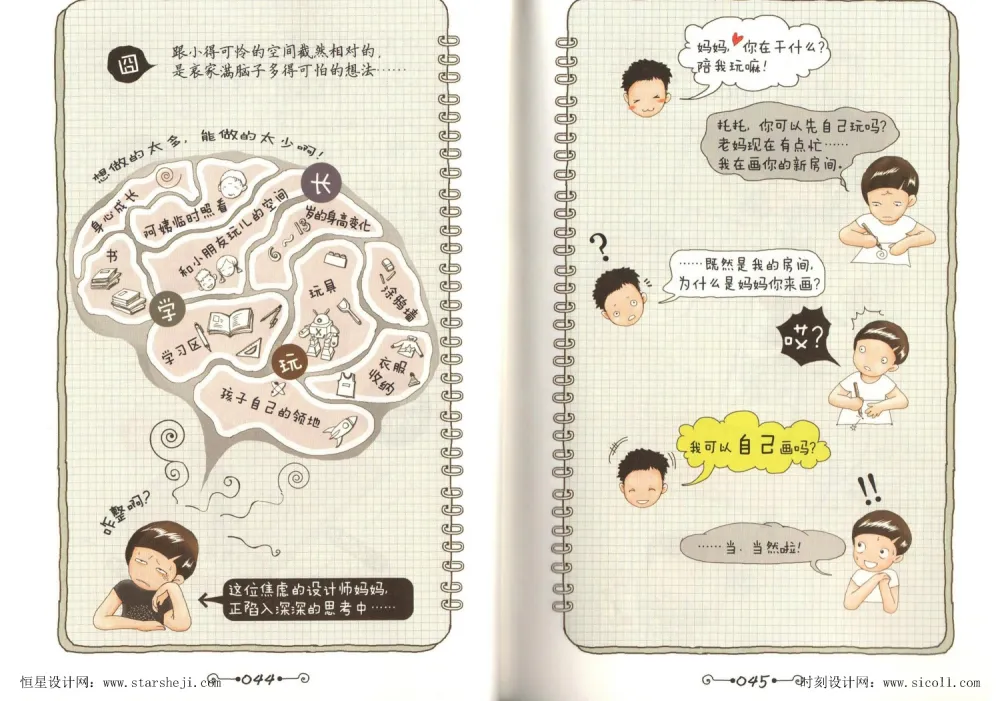 囧
跟小得可怜的空间截然相对的，
是哀家满脑子多得可怕的想法……
想做的太多，能做的太少啊！
身心成长
阿姨临时照看
长
6～13岁的身高变化
书
和小朋友玩儿的空间
玩具
涂鸦墙
学
学习区
玩
衣服
收纳
孩子自己的领地
咋整啊？
这位焦虑的设计师妈妈，
正陷入深深的思考中……
恒星设计网：www.starsheji.com
044
妈妈，你在干什么？
陪我玩嘛！
托托，你可以先自己玩吗？
老妈现在有点忙……
我在画你的新房间。
？
……既然是我的房间，
为什么是妈妈你来画？
哎？
我可以自己画吗？
！！
……当，当然啦！
045
时刻设计网：www.sico11.com